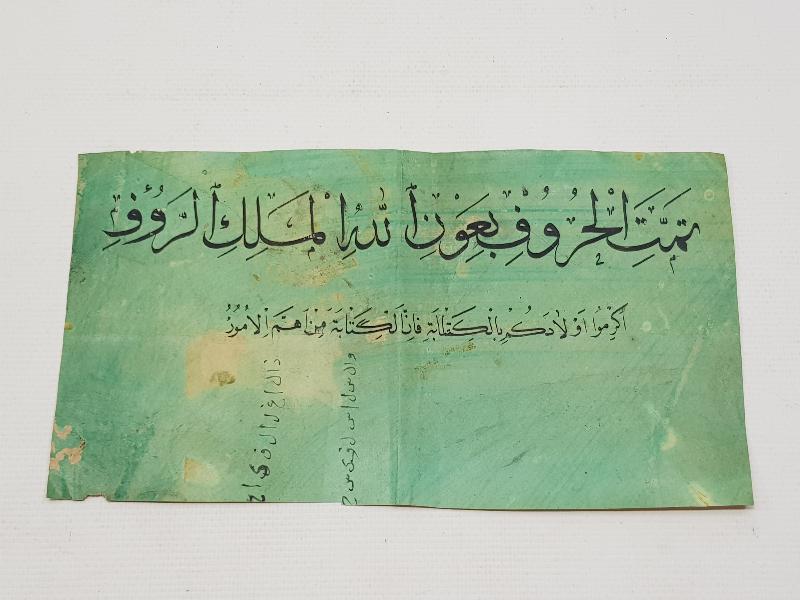 تَمَّتِ الْحُرُوفِ بِعَوْنِ ٱللهِ الْمَلِكِ ٱلرَّؤُفِ
اَكْرِمُوا اَوْلَادَكُمْ بِالْكِتَابَةِ فَاِنَّ الْكِتَابَةَ مِنْ اَهَمِّ الْاُمُورِ